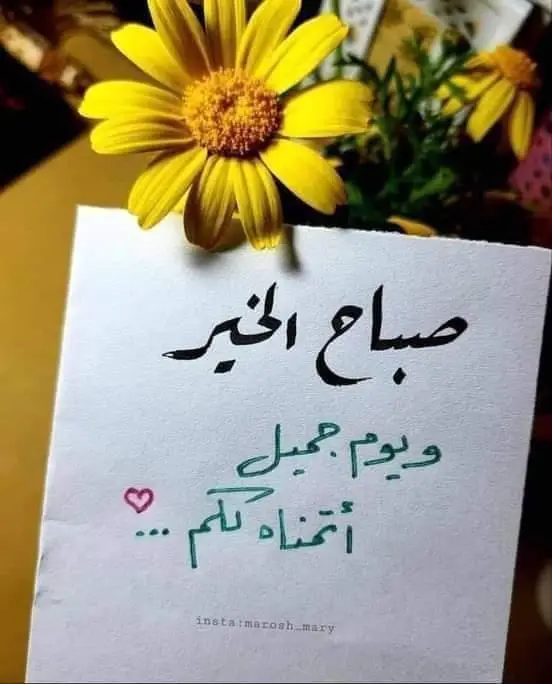 صباح الخير
ويوم جميل
أتمناه لكم ...
insta:marosh_mary